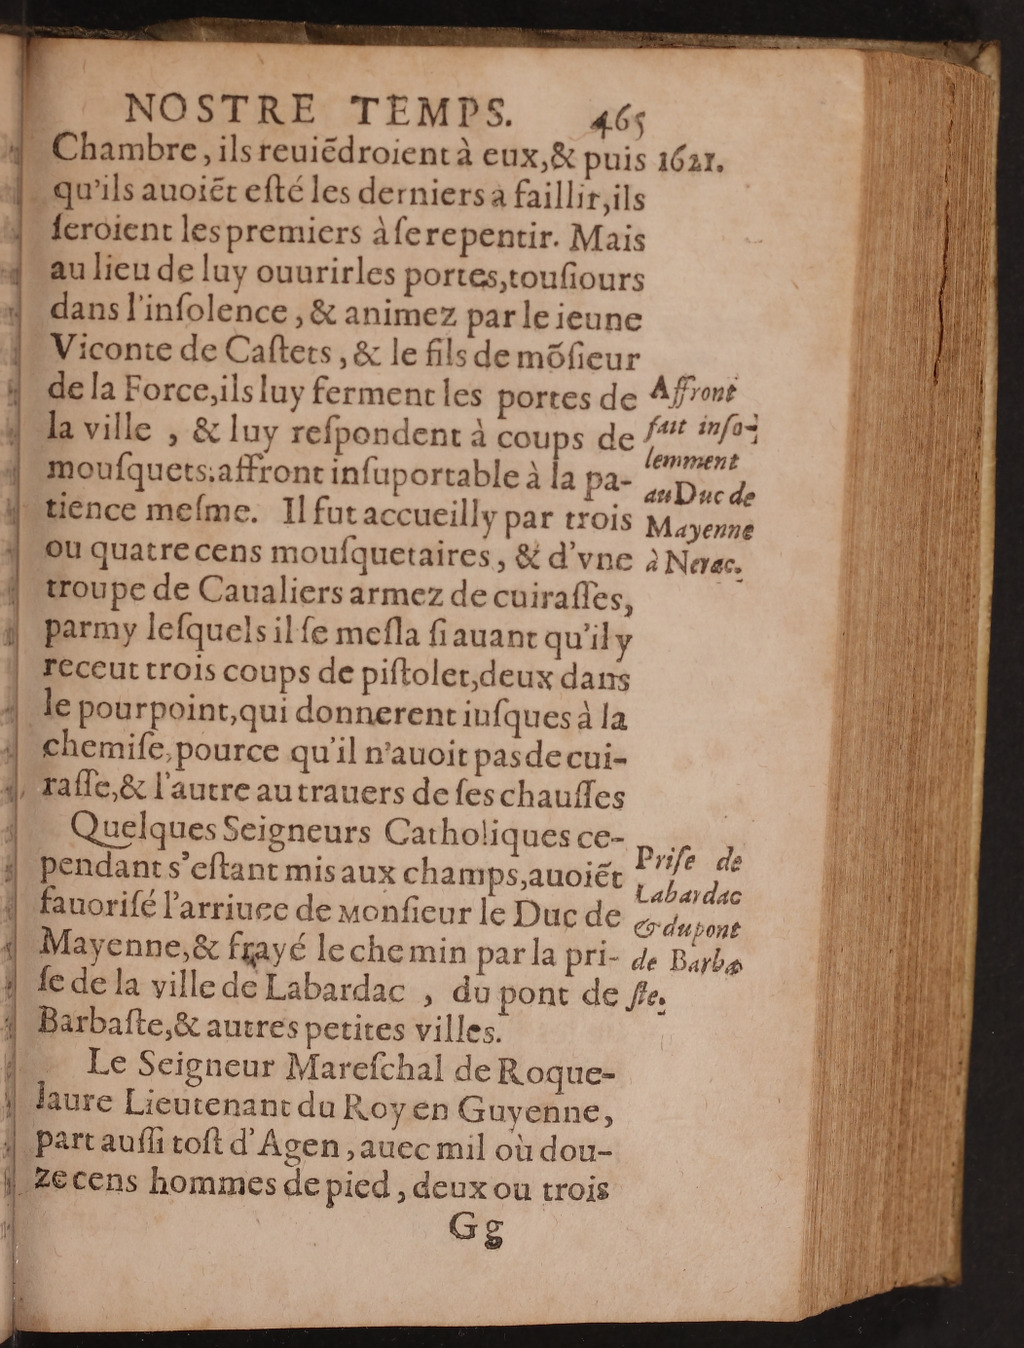 NOSTRE TEMPS. 465
Chambre, ils reuiẽdroient à eux, & puis 1621.
qu'ils auoiẽt eſté les derniers à faillir, ils
ſeroient les premiers à ſe repentir. Mais
au lieu de luy ouurir les portes, touſiours
dans l'inſolence, & animez par le ieune
Viconte de Caſtets, & le fils de mõſieur
de la Force, ils luy ferment les portes de
la ville, & luy reſpondent à coups de
mouſquets: affront inſuportable à la pa-
tience meſme. Il fut accueilly par trois
ou quatre cens mouſquetaires, & d'vne
troupe de Caualiers armez de cuiraſſes,
parmy leſquels il ſe meſla ſi auant qu'il y
receut trois coups de piſtolet, deux dans
le pourpoint, qui donnerent iuſques à la
chemiſe, pource qu'il n'auoit pas de cui-
raſſe, & l'autre au trauers de ſes chauſſes
Affront
fait inſo-
lemment
au Duc de
Mayenne
à Nerac.
Quelques Seigneurs Catholiques ce-
pendant s'eſtant mis aux champs, auoiẽt
fauoriſé l'arriuee de Monſieur le Duc de
Mayenne, & frayé le chemin par la pri-
ſe de la ville de Labardac, du pont de
Barbaſte, & autres petites villes.
Priſe de
Labardac
& du pont
de Barba
ſte.
Le Seigneur Mareſchal de Roque-
laure Lieutenant du Roy en Guyenne,
part auſſi toſt d'Agen, auec mil où dou-
ze cens hommes de pied, deux ou trois
Gg